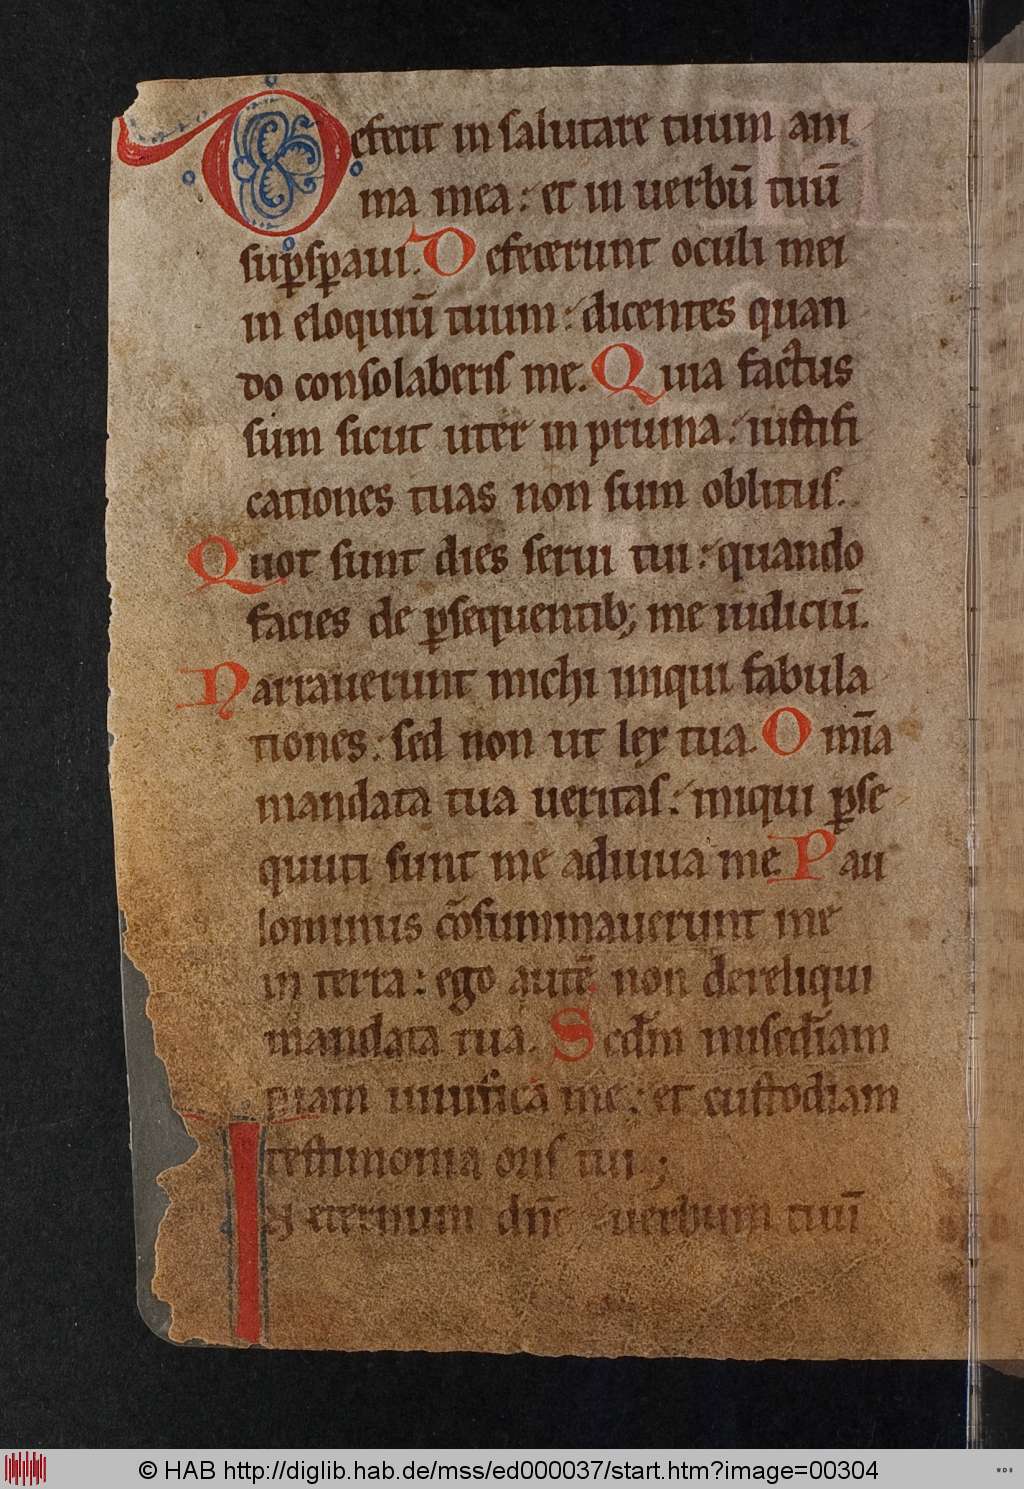 Defecit in salutare tuum ani
ma mea : et in uerbū tuū
sup̱sp̱aui. Defecerunt oculi mei
in eloquiū tuum : dicentes quan
do consolaberis me. Quia factus
sum sicut uter in pruina : iustifi
cationes tuas non sum oblitus.
Quot sunt dies serui tui : quando
facies de p̱sequentib; me iudiciū.
Narrauerunt michi iniqui fabula
tiones : sed non ut lex tua. Om̄ia
mandata tua ueritas : iniqui p̱se
quuti sunt me adiuua me. Pau
lominus cōsummauerunt me
in terra : ego autē non dereliqui
mandata tua. Secdm̄ misedīam
tuam uiuifica me : et custodiam
testimonia oris tui ;
In eternum dn̄e : uerbum tuū
© HAB http://diglib.hab.de/mss/ed000037/start.htm?image=00304